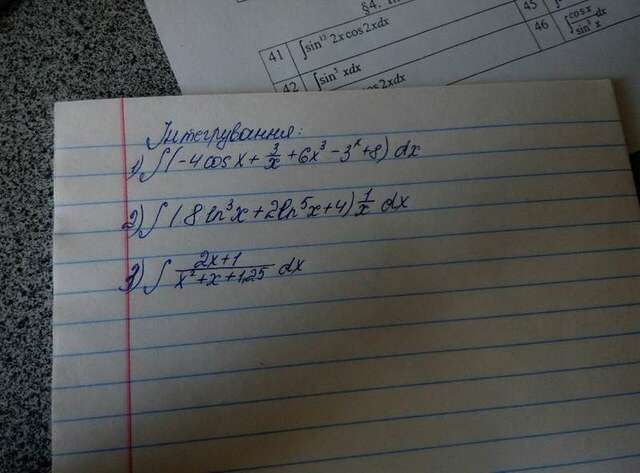 §4.
41 ∫sin¹³ 2x cos2xdx
45
46 ∫cosx/sin³x dx
42 ∫sin⁵ xdx
cos2xdx
Інтегрування:
1) ∫(-4cosx + 3/x + 6x³ - 3ˣ + 8) dx
2) ∫(8ln³x + 2ln⁵x + 4) 1/x dx
3) ∫ 2x+1/x²+x+1,25 dx